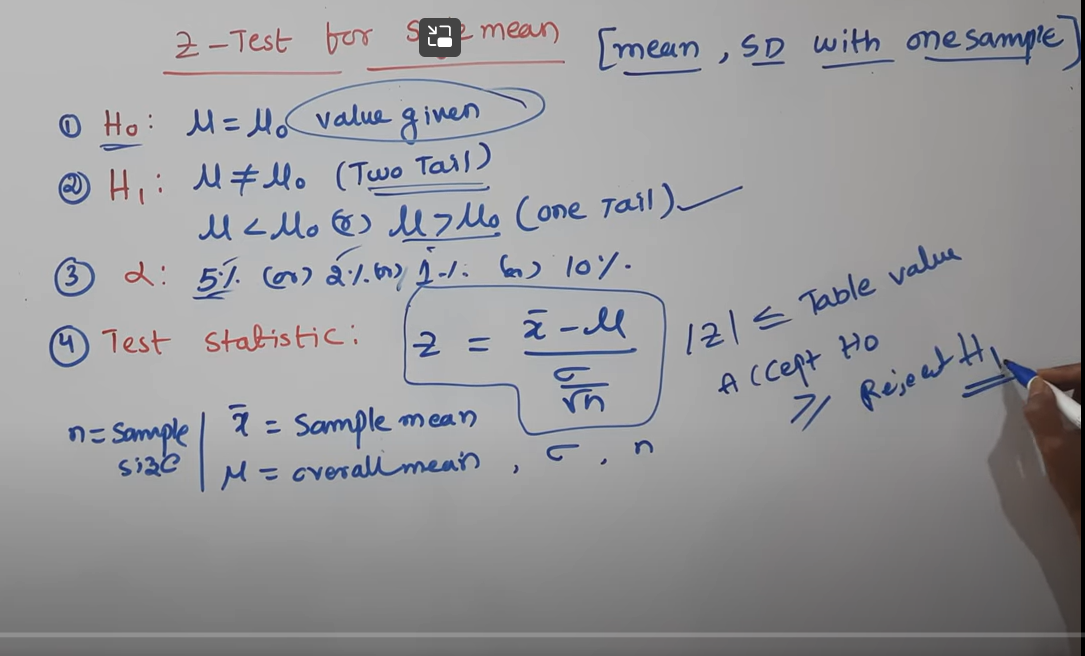 Z-Test for S mean [mean, SD with one sample]
① H₀: μ = μ₀ value given
② H₁: μ ≠ μ₀ (Two Tail)
μ < μ₀ (or) μ > μ₀ (one Tail)
③ α: 5%. (or) 2%. (or) 1%. (or) 10%.
④ Test Statistic: z = x̄ - μ / σ/√n
|z| ≤ Table value
Accept H0
≥ Reject H₁
n = Sample size
x̄ = Sample mean
μ = overall mean, σ, n